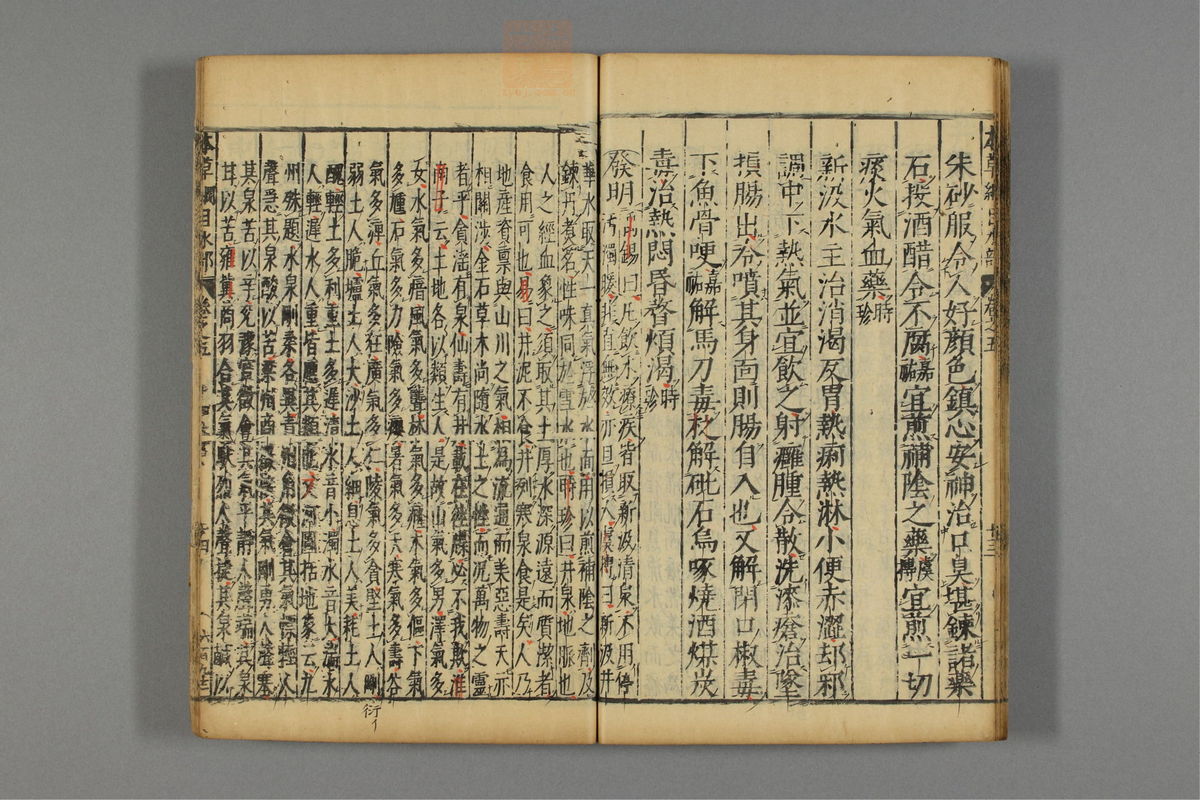 朱砂服令人好顏色鎮心安神治口臭堪鍊諸藥
石投酒醋令不腐嘉祐宜煎補陰之藥虞摶宜煎一切
痰火氣血藥時珍
新汲水主治消渴反胃熱痢熱淋小便赤澀却邪
調中下熱氣並宜飲之射癰腫令散洗漆瘡治墜
損腸出冷噴其身面則腸自入也又解閉口椒毒
下魚骨哽嘉祐解馬刀毒之才解砒石烏喙燒酒煤炭
毒治熱悶昏瞀煩渴時珍
發明禹錫曰凡飲水療疾皆取新汲清泉不用停
汚濁暖非直無效亦且損人虞摶曰新汲井
華水取天一真氣浮於水面用以煎補陰之劑及
鍊丹煮茗性味同於雪水也時珍曰井泉地脈也
人之經血象之須取其土厚水深源遠而質潔者
食用可也易曰井泥不食井冽寒泉食是矣人乃
地產資稟與山川之氣相為流通而美惡壽夭亦
相關涉金石草木尚隨水土之性而況萬物之靈
者乎貪淫有泉仙壽有井載在往牒必不我欺淮
南子云土地各以類生人是故山氣多男澤氣多
女水氣多瘖風氣多聾林氣多癃木氣多傴下氣
多尰石氣多力險氣多癭暑氣多夭寒氣多壽谷
氣多痺丘氣多狂廣氣多仁陵氣多貪堅土人剛
弱土人脆壚土人大沙土人細息土人美耗土人
醜輕土多利重土多遲清水音小濁水音大湍水
人輕遲水人重皆應其類也又河圖括地象云九
州殊題水泉剛柔各異青州角徵會其氣慓輕人
聲急其泉酸以苦梁州商
其泉苦以辛兗豫宮徵會其氣平靜人聲端其泉
甘以苦雍冀商羽合其氣駛烈人聲捷其泉鹹以
本草綱目水部
卷之五
衍